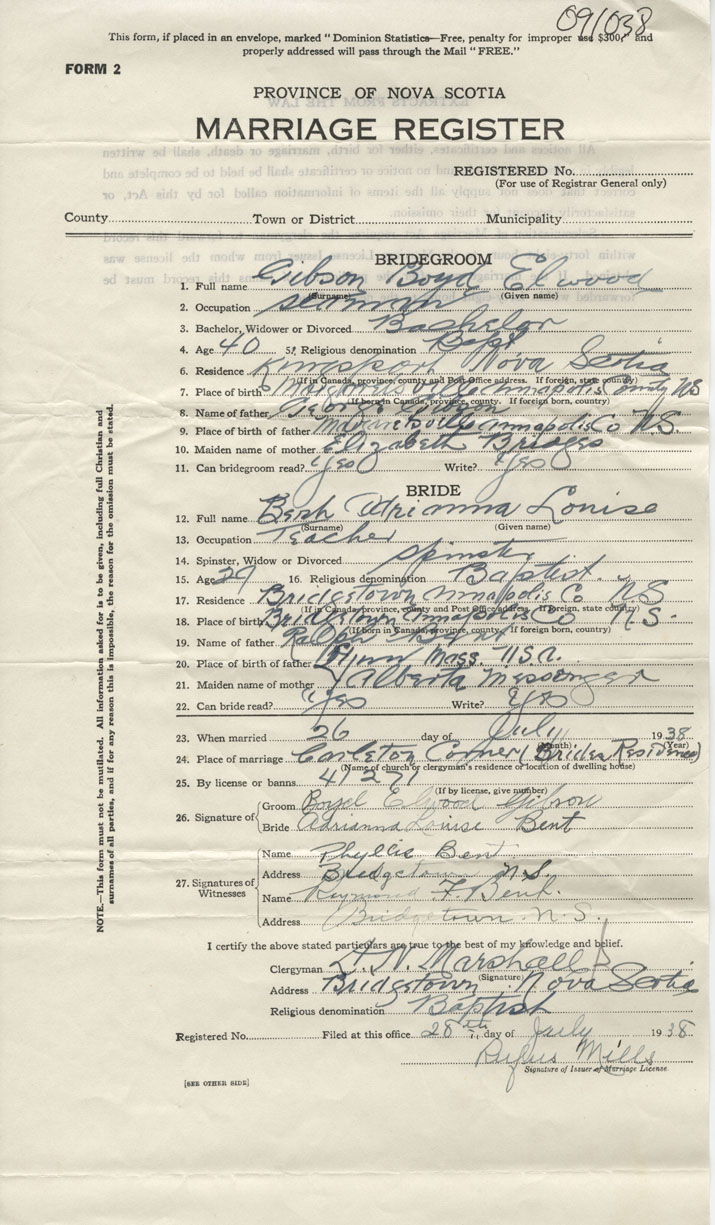 091038
This form, if placed in an envelope, marked "Dominion Statistics—Free, penalty for improper use $300," and
properly addressed will pass through the Mail "FREE."
FORM 2
PROVINCE OF NOVA SCOTIA
MARRIAGE REGISTER
REGISTERED No.
(For use of Registrar General only)
County Town or District Municipality
BRIDEGROOM
1. Full name Gibson Boyd Elwood
(Surname) (Given name)
2. Occupation seaman
3. Bachelor, Widower or Divorced Bachelor
4. Age 40 5. Religious denomination Bapt
6. Residence Kingsport Nova Scotia
(If in Canada, province, county and Post Office address. If foreign, state country)
7. Place of birth Margaretsville Annapolis County NS
(If born in Canada, province, county. If foreign born, country)
8. Name of father George Gibson
9. Place of birth of father Annapolis Co N.S.
10. Maiden name of mother Elizabeth Briggs
11. Can bridegroom read? Yes Write? Yes
BRIDE
12. Full name Bent Adrianna Louise
(Surname) (Given name)
13. Occupation Teacher
14. Spinster, Widow or Divorced Spinster
15. Age 29 16. Religious denomination Baptist.
17. Residence Bridgetown Annapolis Co NS
(If in Canada, province, county and Post Office address. If foreign, state country)
18. Place of birth Bridgetown Annapolis Co N.S.
(If born in Canada, province, county. If foreign born, country)
19. Name of father Ralph Bent
20. Place of birth of father Lynn Mass. USA.
21. Maiden name of mother Alberta Messenger
22. Can bride read? Yes Write? Yes
23. When married 26 day of July 1938
(Month) (Year)
24. Place of marriage Carleton Corner (Brides Residence)
(Name of church or clergyman's residence or location of dwelling house)
25. By license or banns 41271
(If by license, give number)
26. Signature of Groom Boyd Elwood Gibson
Bride Adrianna Louise Bent
27. Signatures of Witnesses Name Phyllis Bent
Address Bridgetown N.S.
Name Raymond F. Bent.
Address Bridgetown N.S.
I certify the above stated particulars are true to the best of my knowledge and belief.
Clergyman Marshall
(Signature)
Address Bridgetown Nova Scotia
Religious denomination Baptist
Registered No. Filed at this office 28th day of July 1938
Rufus Mills
Signature of Issuer of Marriage License.
[SEE OTHER SIDE]
NOTE.—This form must not be mutilated. All information asked for is to be given, including full Christian and
surnames of all parties, and if for any reason this is impossible, the reason for the omission must be stated.